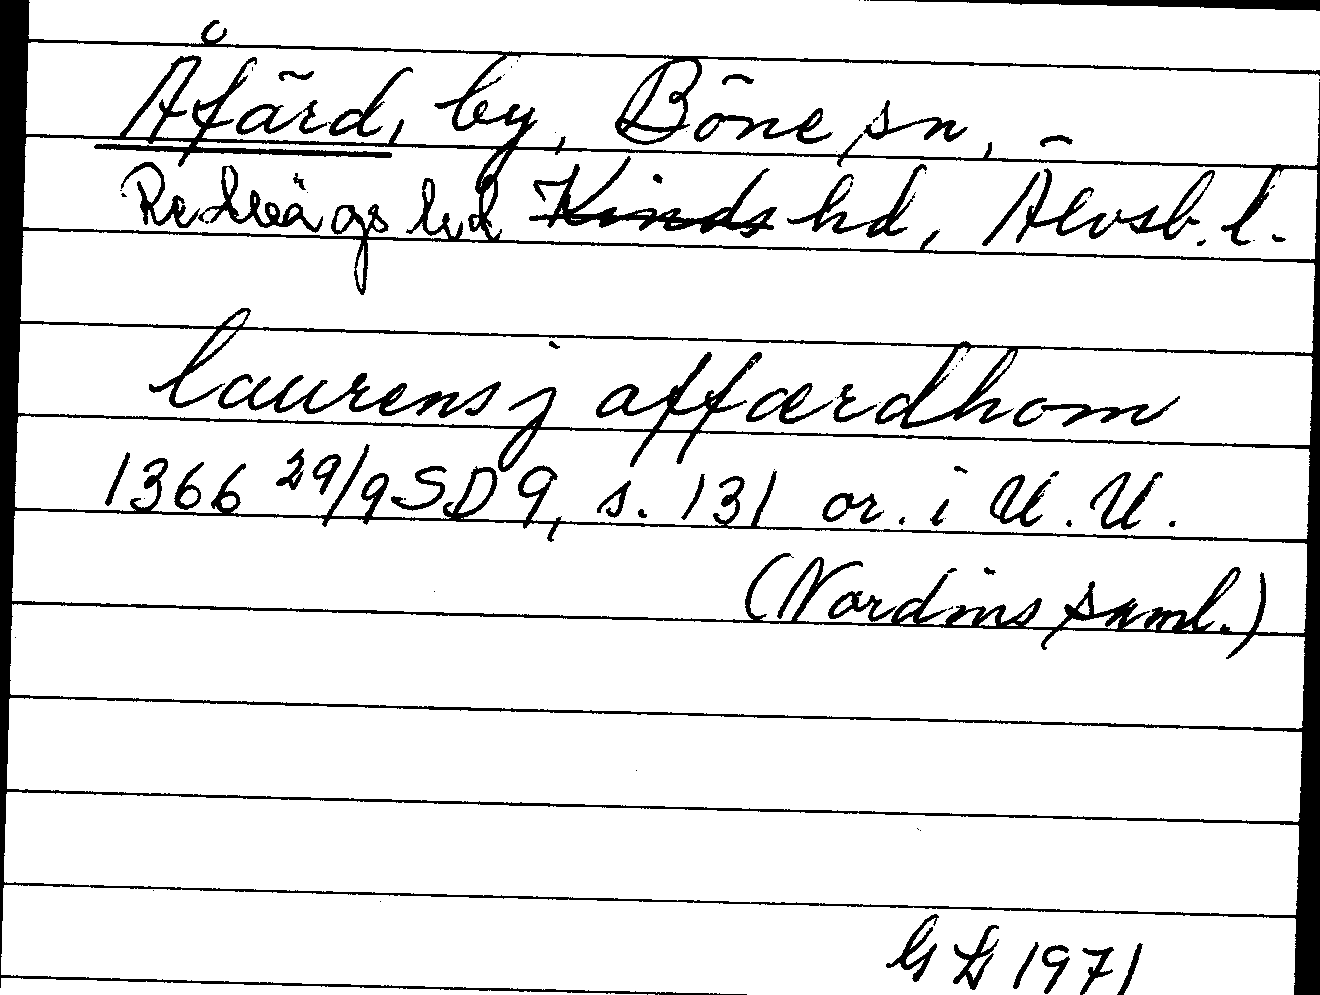 Åfärd, by, Böne sn,
Redvägs hd Kinds hd, Älvsb. l.
laurens j affærdhom
1366 29/9 SD 9, s. 131 or. i U.U.
(Nordins saml.)
1971